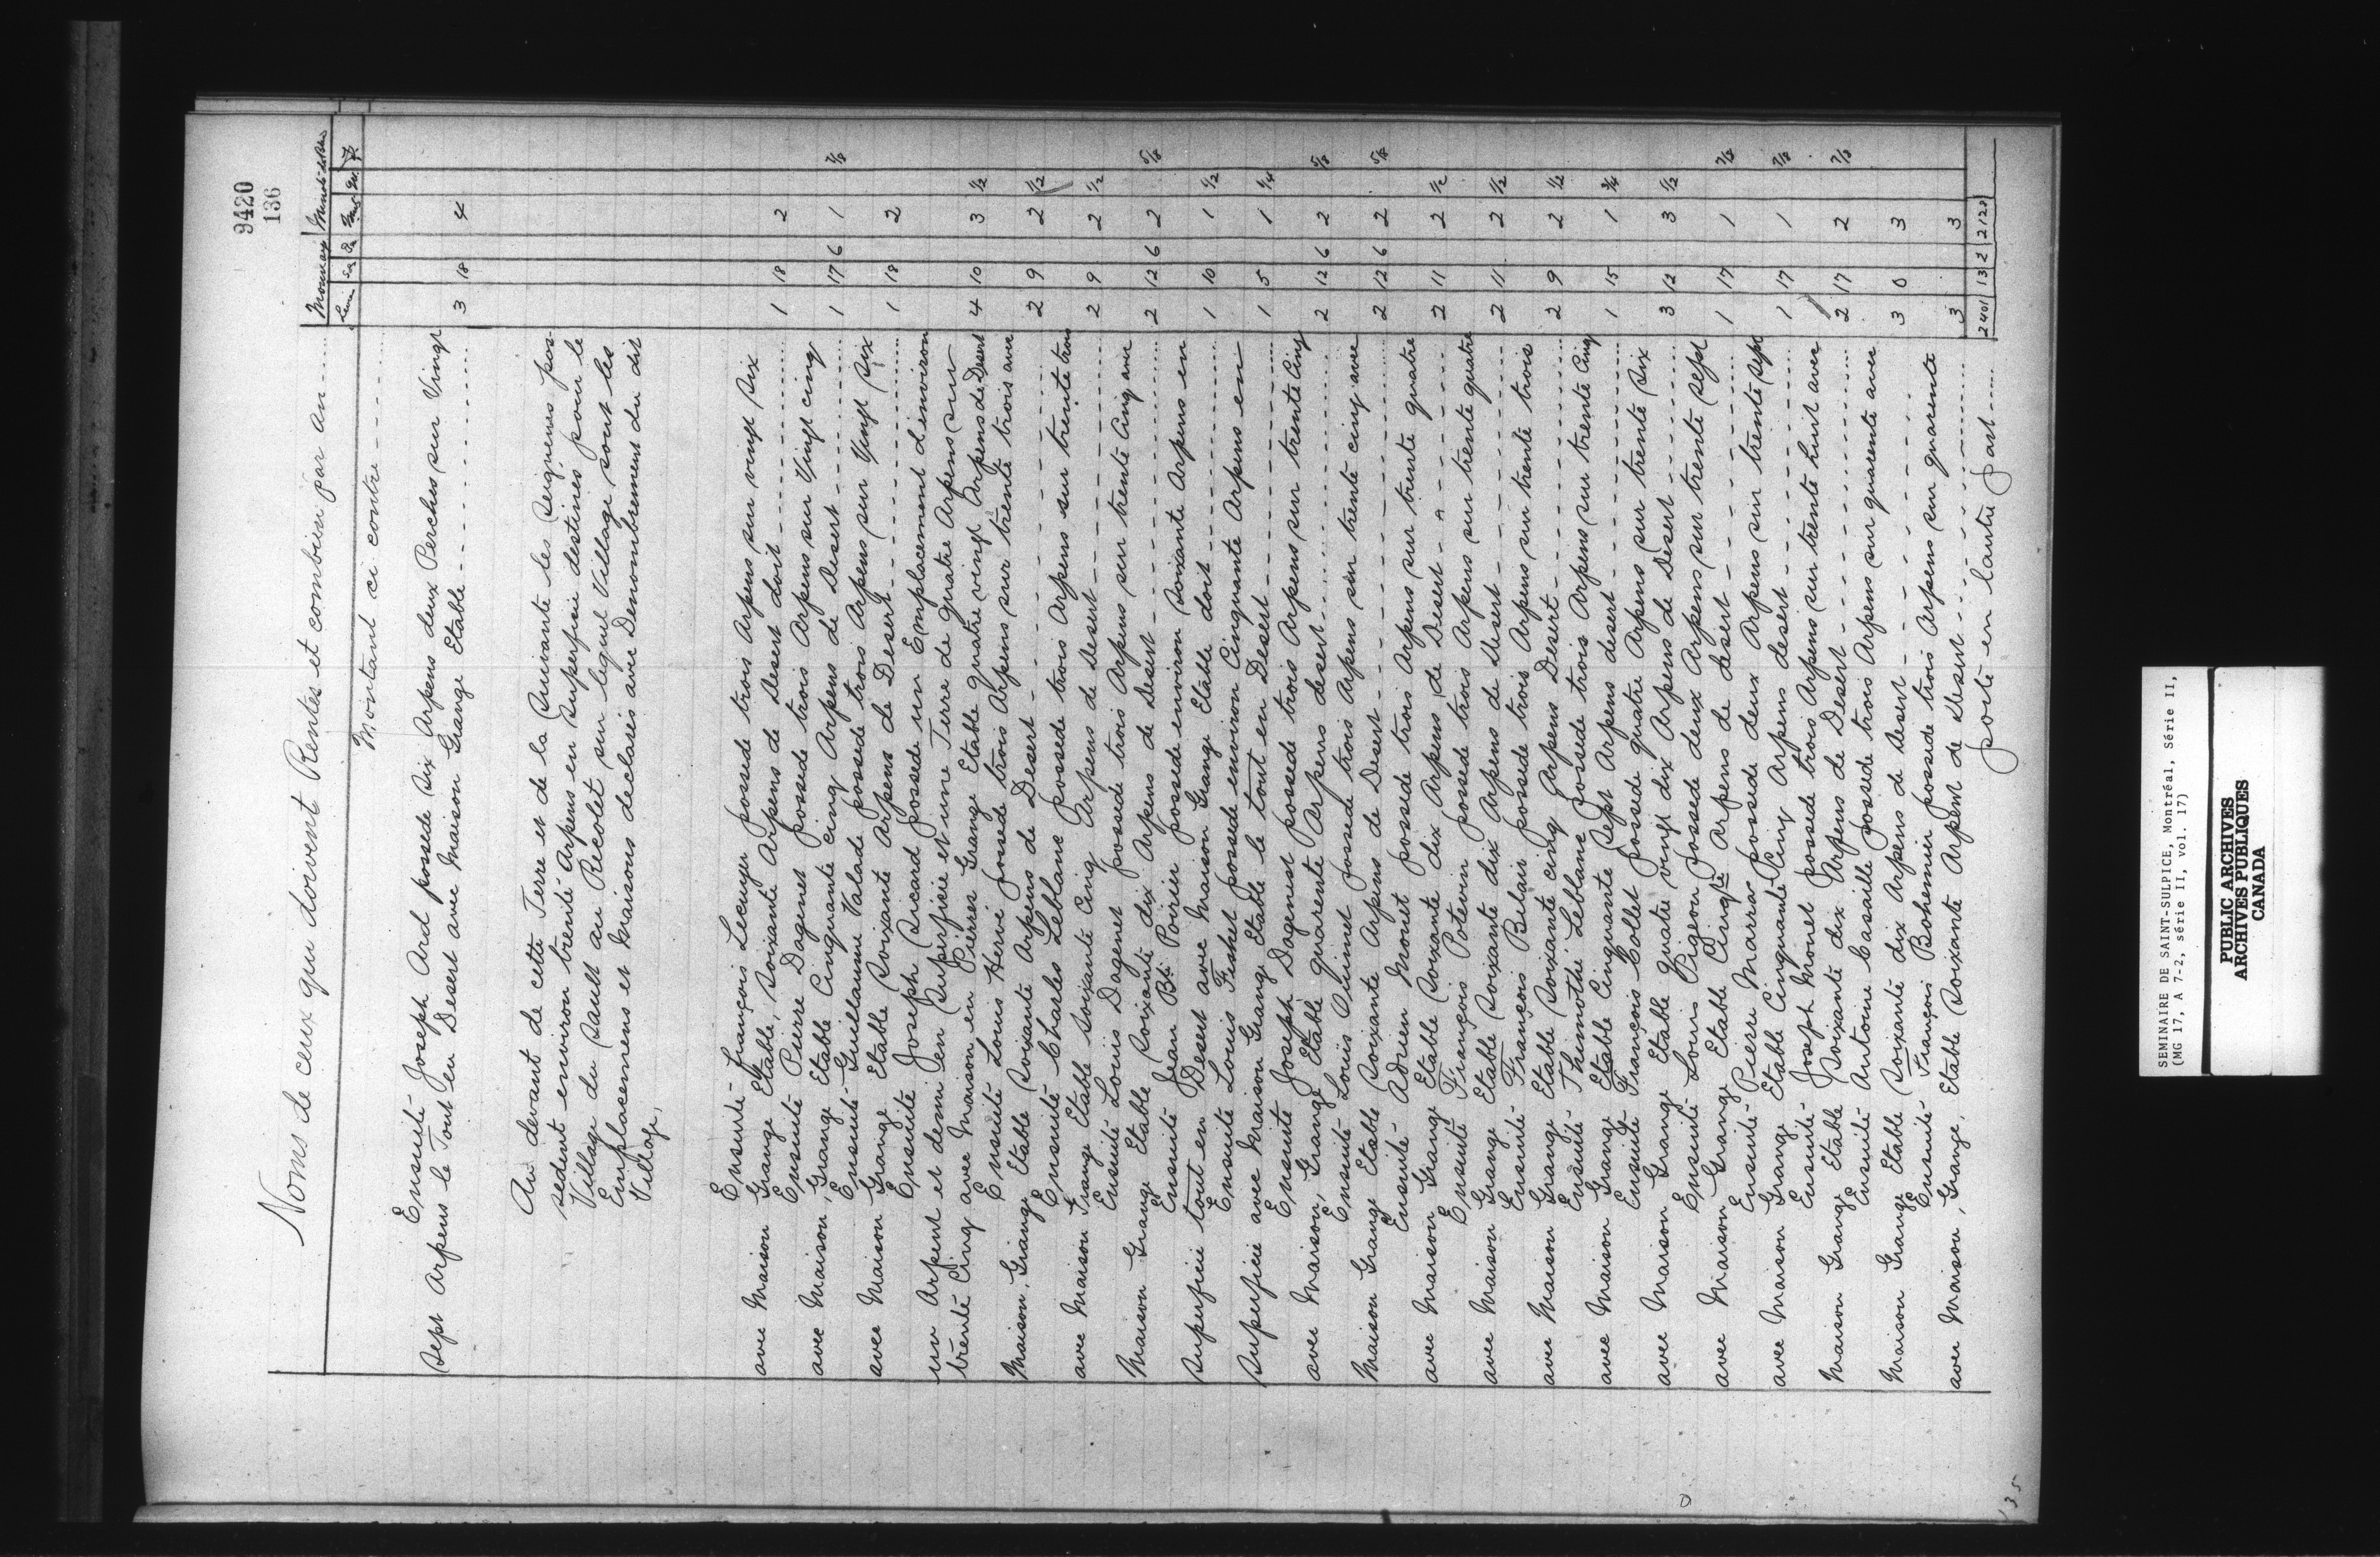 9420
136
Noms de ceux qui doivent Rentes et combien par an
Monnaye
Livre Sol De
Montant ci contre
Ensuité Joseph Ard possede six Arpens deux Perches sur Vingt
sept Arpens le Tout en Desert avec Maison Grange Etable 3 18 4
Au devant de cette Terre et de la Suivante les Seigneurs pos-
sedent environ trente Arpens en Superficie destinés pour le
Village du Sault au Recolet sur lequel Village sont les
Emplacemens et Maisons declarés avec Denombrement du dit
Village.
Ensuité François Lecuyer possede trois Arpens sur vingt six
avec Maison Grange Etable, soixante Arpens de Desert doit 1 18 2
Ensuité Pierre Dagenet possede trois Arpens sur Vingt cinq
avec Maison, Grange Etable Cinquante Cinq Arpens de Desert 1 17 6 1 7/8
Ensuité Guillaume Valade possede trois Arpens sur Vingt six
avec Maison Grange Etable Soixante Arpens de Desert 1 18 2
Ensuité Joseph Sicard possede un Emplacement d'environ
un Arpent et demi en Superficie et une Terre de quatre Arpens sur
trente Cinq avec Maison en Pierres Grange Etable quatre vingt Arpens de Desert 4 10 3 1/2
Ensuité Louis Hervé possede trois Arpens sur trente trois avec
Maison, Grange Etable Soixante Arpens de Desert 2 9 2 1/2
Ensuité Charles Leblanc possede trois Arpens sur trente trois
avec Maison Grange Etable soixante Cinq Arpens de Desert 2 9 2 1/2
Ensuité Louis Dagenet possede trois Arpens sur trente Cinq avec
Maison Grange Etable Soixante dix Arpens de Desert 2 12 6 2 5/8
Ensuité Jean Bte Poirier possede environ soixante Arpens en
Superficie tout en Desert avec Maison Grange Etable doit 1 10 1 1/2
Ensuite Louis Fishet possede environ Cinquante Arpens en
Superficie avec Maison Grange Etable le tout en Desert 1 5 1 1/4
Ensuite Joseph Dagenest possede trois Arpens sur trente Cinq
avec Maison, Grange Etable quarente Arpens desert 2 12 6 2 5/8
Ensuité Louis Ouimet possede trois Arpens sur trente cinq avec
Maison Grange Etable Soixante Arpens de Desert 2 12 6 2 5/8
Ensuité Adrien Monet possede trois Arpens sur trente quatre
avec Maison Grange Etable Soixante dix Arpens de Desert 2 11 2 1/2
Ensuité François Potevin possede trois Arpens sur trente quatre
avec Maison Grange Etable Soixante dix Arpens de Desert 2 11 2 1/2
Ensuité François Belair possede trois Arpens sur trente trois
avec Maison Grange Etable Soixante cinq Arpens Desert 2 9 2 1/2
Ensuité Thimothé Leblanc possede trois Arpens sur trente Cinq
avec Maison Grange Etable Cinquante Sept Arpens desert 1 15 1 3/4
Ensuité François Collet possede quatre Arpens sur trente six
avec Maison Grange Etable quatre vingt dix Arpens de Desert 3 12 3 1/2
Ensuité Louis Pigeon possede deux Arpens sur trente sept
avec Maison Grange Etable Cinqte Arpens de desert 1 17 1 7/8
Ensuité Pierre Marra possede deux Arpens sur trente sept
avec Maison Grange Etable Cinquante Cinq Arpens desert 1 17 1 7/8
Ensuité Joseph Monet possede trois Arpens sur trente huit avec
Maison Grange Etable Soixante dix Arpens de Desert 2 17 2 7/8
Ensuité Antoine Casaille possede trois Arpens sur quarente avec
Maison Grange Etable Soixante dix Arpens de Desert 3 0 3
Ensuité François Bohemier possede trois Arpens sur quarente
avec Maison, Grange, Etable Soixante Arpent de Desert 3 3
porté en l'autre part 2401 13 2 212
135
SEMINAIRE DE SAINT-SULPICE, Montréal, Série II,
(MG 17, A 7-2, série II, vol. 17)
PUBLIC ARCHIVES
ARCHIVES PUBLIQUES
CANADA